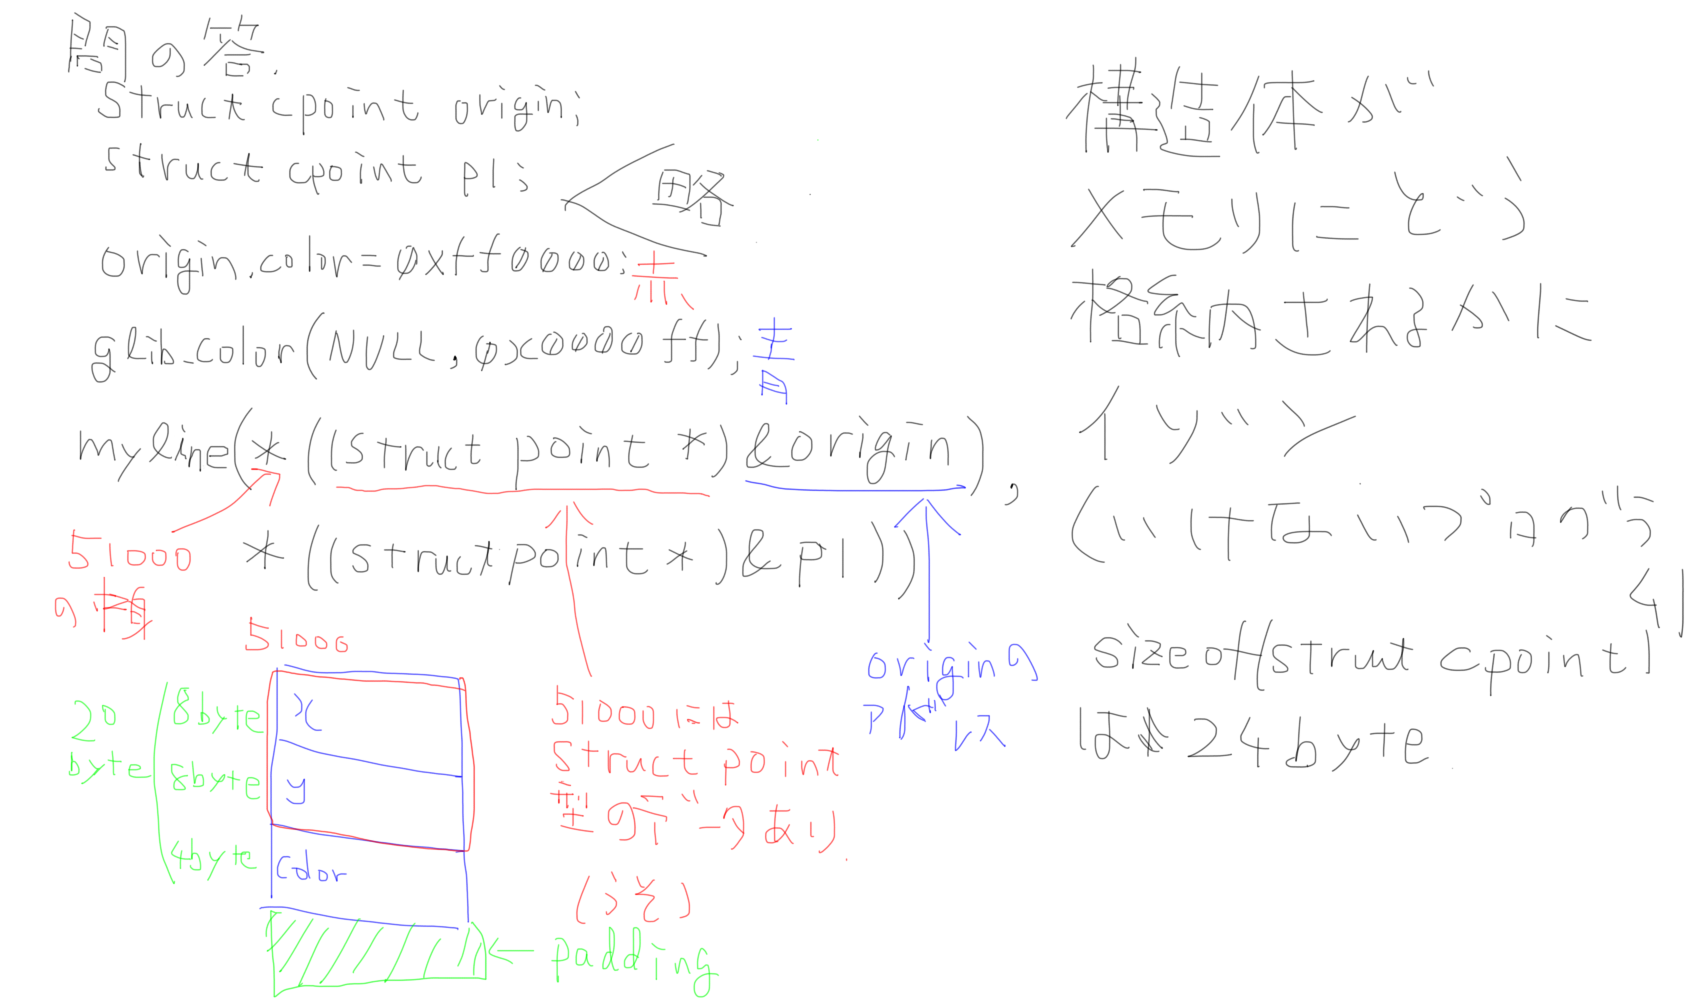 問の答.
struct cpoint origin;
struct cpoint p1;
略
origin.color=0xff0000;赤
glib_color(NULL,0x0000ff);青
myline(*((struct point *)&origin),
*((struct point *)&p1))
51000
の中身
51000
20
byte
8byte
x
8byte
y
4byte
color
padding
51000には
struct point
型のデータあり.
(うそ)
originの
アドレス
構造体が
メモリにどう
格納されるかに
イゾン
(いけないプログラ
ム)
sizeof(struct cpoint)
は 24byte